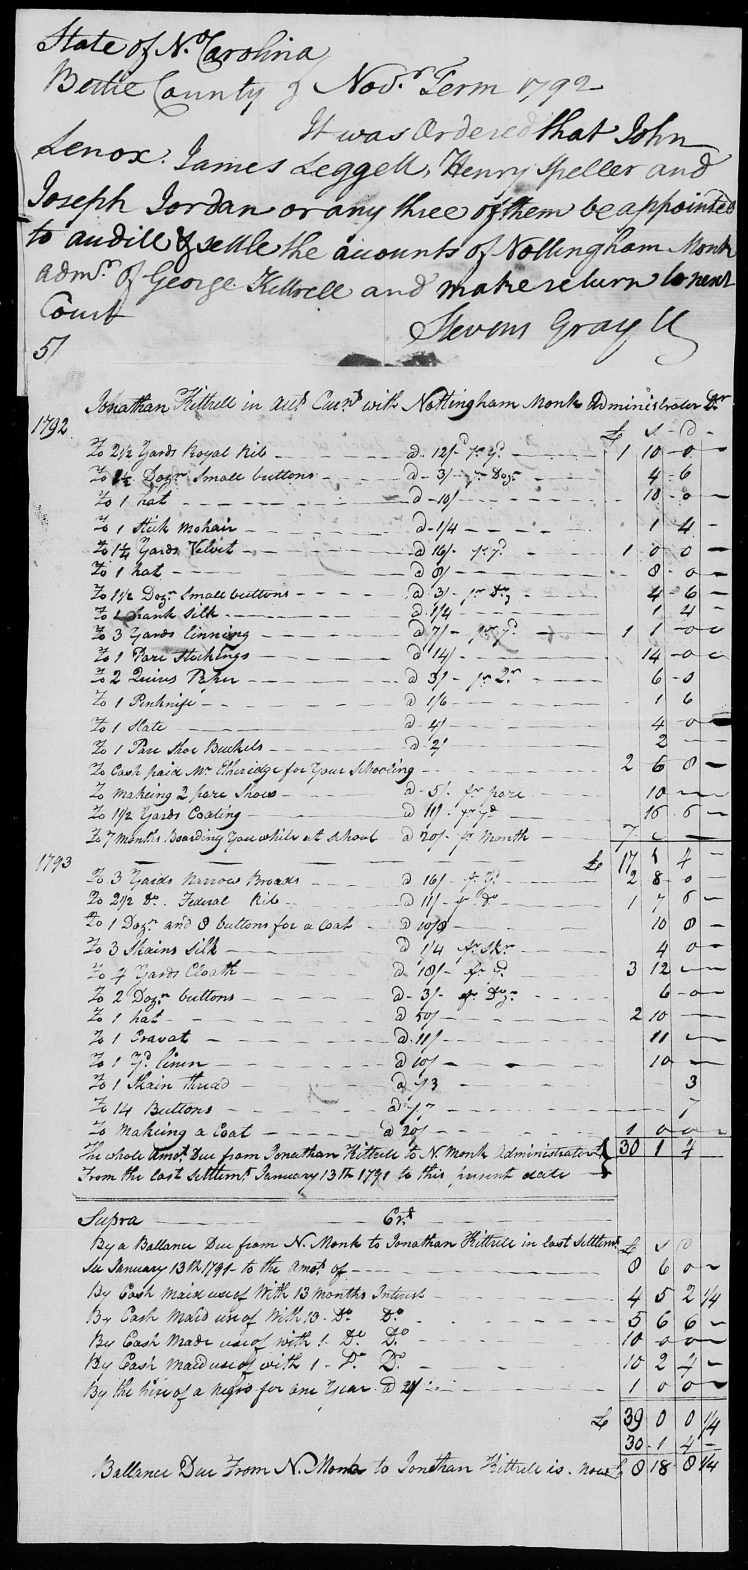 State of No. Carolina
Bertie County } Novr. Term 1792
It was Ordered that John
Lenox. James Leggett, Henry Speller and
Joseph Jordan or any three of them be appointed
to audit & settle the accounts of Nottingham Monk
admr. of George Kittrell and make return to next
Court
Stevens Gray
51
Jonathan Kittrell in Acct. Curnt. with Nottingham Monk Administrator Dr
1792 £ s d
To 2½ Yards Royal Rib a 12/- pr yd 1 10 0
To 1½ Dozn. Small buttons a 3/- pr Dozn. 4 6
To 1 hat a 10/ 10 0
To 1 Stick Mohair a 1/4 1 4
To 1¼ Yards Velvet a 16/- pr yd 1 0 0
To 1 hat a 8/ 8 0
To 1½ Dozn. Small buttons a 3/ pr Dozn 4 6
To 1 hank Silk a 1/4 1 4
To 3 Yards linning a 7/- pr yd 1 1 0
To 1 Pare Stockings a 14/ 14 0
To 2 Quires Paper a 3/- pr Qr. 6 0
To 1 Penknife a 1/6 1 6
To 1 Slate a 4/ 4 0
To 1 Pare Shoe Buckels a 2/ 2
To Cash paid Mr. Etheridge for Your Schooling 2 6 8
To Makeing 2 pare Shoes a 5/. pr pare 10
To 1½ Yards Coating a 11/ pr yd 16 6
To 7 Months Boarding You while at School a 20/- pr Month 7
£ 17 1 4
1793
To 3 Yards Narrow Broads a 16/- pr Yd. 2 8 0
To 2½ Do. Federal Rib a 11/- pr Do 1 7 6
To 1 Dozn. and 8 buttons for a Coat a 10/8 10 8
To 3 Skains Silk a 1/4 pr Skn. 4 0
To 4 Yards Cloath a 18/- pr Yd. 3 12
To 2 Dozn. buttons a 3/- pr Dozn. 6 0
To 1 hat a 50/ 2 10
To 1 Cravat a 11/ 11
To 1 Yd. linen a 10/ 10
To 1 Skain thread a /3 3
To 14 Buttons a /7 7
To Makeing a Coat a 20/ 1 0 0
The whole Amot. Due from Jonathan Kittrell to N. Monk Administrator } 30 1 4
From the last Settlemt. January 13th 1791 to this present date
Supra Crd.
By a Ballance Due from N. Monk to Jonathan Kittrell in last Settlemt. £ s d
See January 13th 1791 to the Amot. of 8 6 0
By Cash Maid use of With 13 months Interest 4 5 2 ¼
By Cash Maid use of With 13 Do. Do. 5 6 6
By Cash Made use of with 1. Do. Do. 10 0 0
By Cash Maid use of with 1 Do. Do. 10 2 4
By the hire of a Negro for one Year a 20/ 1 0 0
£ 39 0 0 ¼
30 1 4
Ballance Due From N. Monk to Jonathan Kittrell is now £ 8 18 8 ¼